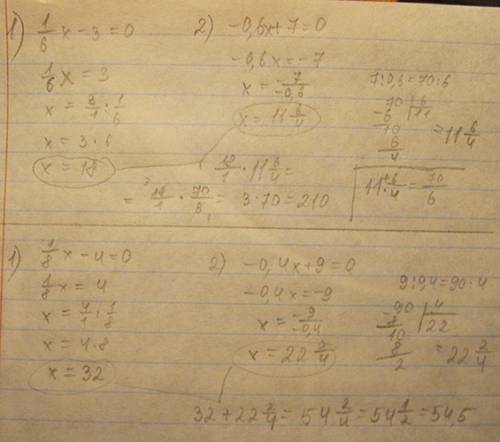 1) 1/6 x - 3 = 0
1/6 x = 3
x = 3/1 : 1/6
x = 3 · 6
x = 18
2) -0,6x + 7 = 0
-0,6x = -7
x = -7/-0,6
x = 11 6/4
7:0,6 = 70:6
70 | 6
-6 | 11
10
6
4
= 11 6/4
18/1 · 11 6/4 =
= 18/1 · 70/6 = 3 · 70 = 210
11 + 6/4 = 70/6
1) 1/8 x - 4 = 0
1/8 x = 4
x = 4/1 : 1/8
x = 4 · 8
x = 32
2) -0,4x + 9 = 0
-0,4x = -9
x = -9/-0,4
x = 22 2/4
9:0,4 = 90:4
-90 | 4
8 | 22
10
8
2
= 22 2/4
32 + 22 2/4 = 54 2/4 = 54 1/2 = 54,5